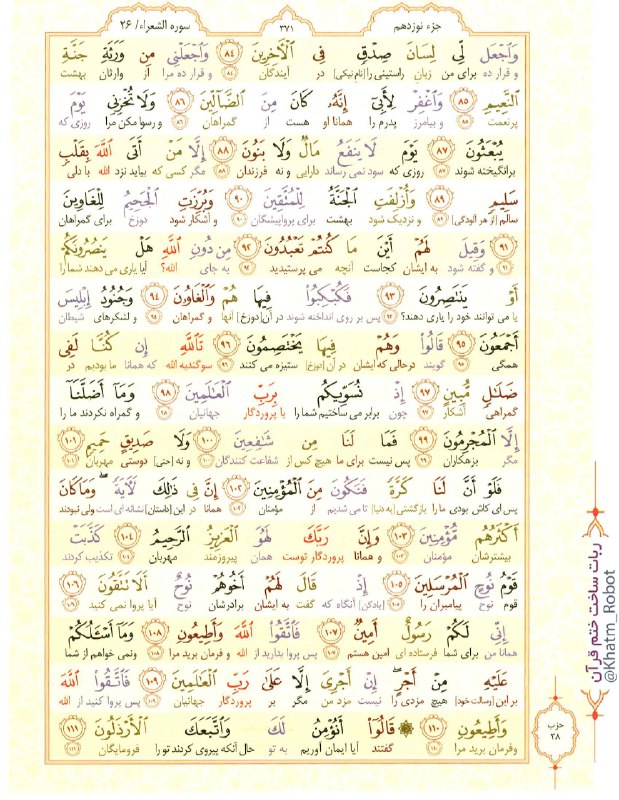 جزء نوزدهم
۳۷۱
سوره الشعراء/ ۲۶
وَٱجۡعَل لِّي لِسَانَ صِدۡقٖ فِي ٱلۡأٓخِرِينَ ۸۴ وَٱجۡعَلۡنِي مِن وَرَثَةِ جَنَّةِ
و قرار ده برای من زبان راستینی را[نام نیکی] در آیندگان ۸۴ و قرار ده مرا از وارثان بهشت
ٱلنَّعِيمِ ۸۵ وَٱغۡفِرۡ لِأَبِيٓ إِنَّهُۥ كَانَ مِنَ ٱلضَّآلِّينَ ۸۶ وَلَا تُخۡزِنِي يَوۡمَ
پرنعمت ۸۵ و بیامرز پدرم را همانا او هست از گمراهان ۸۶ و رسوا مکن مرا روزی که
يُبۡعَثُونَ ۸۷ يَوۡمَ لَا يَنفَعُ مَالٞ وَلَا بَنُونَ ۸۸ إِلَّا مَنۡ أَتَى ٱللَّهَ بِقَلۡبٖ
برانگیخته شوند ۸۷ روزی که سود نمی رساند دارایی و نه فرزندان ۸۸ مگر کسی که بیاید نزد الله با دلی
سَلِيمٖ ۸۹ وَأُزۡلِفَتِ ٱلۡجَنَّةُ لِلۡمُتَّقِينَ ۹۰ وَبُرِّزَتِ ٱلۡجَحِيمُ لِلۡغَاوِينَ
سالم[از هر آلودگی] ۸۹ و نزدیک شود بهشت برای پرواپیشگان ۹۰ و آشکار شود دوزخ برای گمراهان
۹۱ وَقِيلَ لَهُمۡ أَيۡنَ مَا كُنتُمۡ تَعۡبُدُونَ ۹۲ مِن دُونِ ٱللَّهِ هَلۡ يَنصُرُونَكُمۡ
۹۱ و گفته شود به ایشان کجاست آنچه می پرستیدید ۹۲ به جای الله؟ آیا یاری می دهند شما را
أَوۡ يَنتَصِرُونَ ۹۳ فَكُبۡكِبُواْ فِيهَا هُمۡ وَٱلۡغَاوُۥنَ ۹۴ وَجُنُودُ إِبۡلِيسَ
یا می توانند خود را یاری دهند؟ ۹۳ پس بر روی انداخته شوند در آن[دوزخ] آنها و گمراهان ۹۴ و لشکرهای شیطان
أَجۡمَعُونَ ۹۵ قَالُواْ وَهُمۡ فِيهَا يَخۡتَصِمُونَ ۹۶ تَٱللَّهِ إِن كُنَّا لَفِي
همگی ۹۵ گویند درحالی که ایشان در آن[دوزخ] ستیزه می کنند ۹۶ سوگند به الله که همانا ما بودیم در
ضَلَٰلٖ مُّبِينٍ ۹۷ إِذۡ نُسَوِّيكُم بِرَبِّ ٱلۡعَٰلَمِينَ ۹۸ وَمَآ أَضَلَّنَآ
گمراهی آشکار ۹۷ چون برابر می ساختیم شما را با پروردگار جهانیان ۹۸ و گمراه نکردند ما را
إِلَّا ٱلۡمُجۡرِمُونَ ۹۹ فَمَا لَنَا مِن شَٰفِعِينَ ۱۰۰ وَلَا صَدِيقٍ حَمِيمٖ ۱۰۱
مگر بزهکاران ۹۹ پس نیست برای ما هیچ کس از شفاعت کنندگان ۱۰۰ و نه [حتی] دوستی مهربان ۱۰۱
فَلَوۡ أَنَّ لَنَا كَرَّةٗ فَنَكُونَ مِنَ ٱلۡمُؤۡمِنِينَ ۱۰۲ إِنَّ فِي ذَٰلِكَ لَأٓيَةٗۖ وَمَا كَانَ
پس ای کاش بودی ما را بازگشتی [به دنیا] تا می شدیم از مؤمنان ۱۰۲ همانا در این[داستان] نشانه ای است ولی نبودند
أَكۡثَرُهُم مُّؤۡمِنِينَ ۱۰۳ وَإِنَّ رَبَّكَ لَهُوَ ٱلۡعَزِيزُ ٱلرَّحِيمُ ۱۰۴ كَذَّبَتۡ
بیشترشان مؤمنان ۱۰۳ و همانا پروردگار توست همان پیروزمند مهربان ۱۰۴ تکذیب کردند
قَوۡمُ نُوحٍ ٱلۡمُرۡسَلِينَ ۱۰۵ إِذۡ قَالَ لَهُمۡ أَخُوهُمۡ نُوحٌ أَلَا تَتَّقُونَ ۱۰۶
قوم نوح پیامبران را ۱۰۵ [یادکن] آنگاه که گفت به ایشان برادرشان نوح آیا پروا نمی کنید ۱۰۶
إِنِّي لَكُمۡ رَسُولٌ أَمِينٞ ۱۰۷ فَٱتَّقُواْ ٱللَّهَ وَأَطِيعُونِ ۱۰۸ وَمَآ أَسۡـَٔلُكُمۡ
همانا من برای شما فرستاده ای امین هستم ۱۰۷ پس پروا بدارید از الله و فرمان برید مرا ۱۰۸ ونمی خواهم از شما
عَلَيۡهِ مِنۡ أَجۡرٍۖ إِنۡ أَجۡرِيَ إِلَّا عَلَىٰ رَبِّ ٱلۡعَٰلَمِينَ ۱۰۹ فَٱتَّقُواْ ٱللَّهَ
بر این[رسالت خود] هیچ مزدی را نیست مزد من مگر بر پروردگار جهانیان ۱۰۹ پس پروا کنید از الله
وَأَطِيعُونِ ۱۱۰ قَالُوٓاْ أَنُؤۡمِنُ لَكَ وَٱتَّبَعَكَ ٱلۡأَرۡذَلُونَ ۱۱۱
وفرمان برید مرا ۱۱۰ گفتند آیا ایمان آوریم به تو حال آنکه پیروی کردند تو را فرومایگان ۱۱۱
حزب
۳۸
ربات ساخت ختم قرآن
@Khatm_Robot